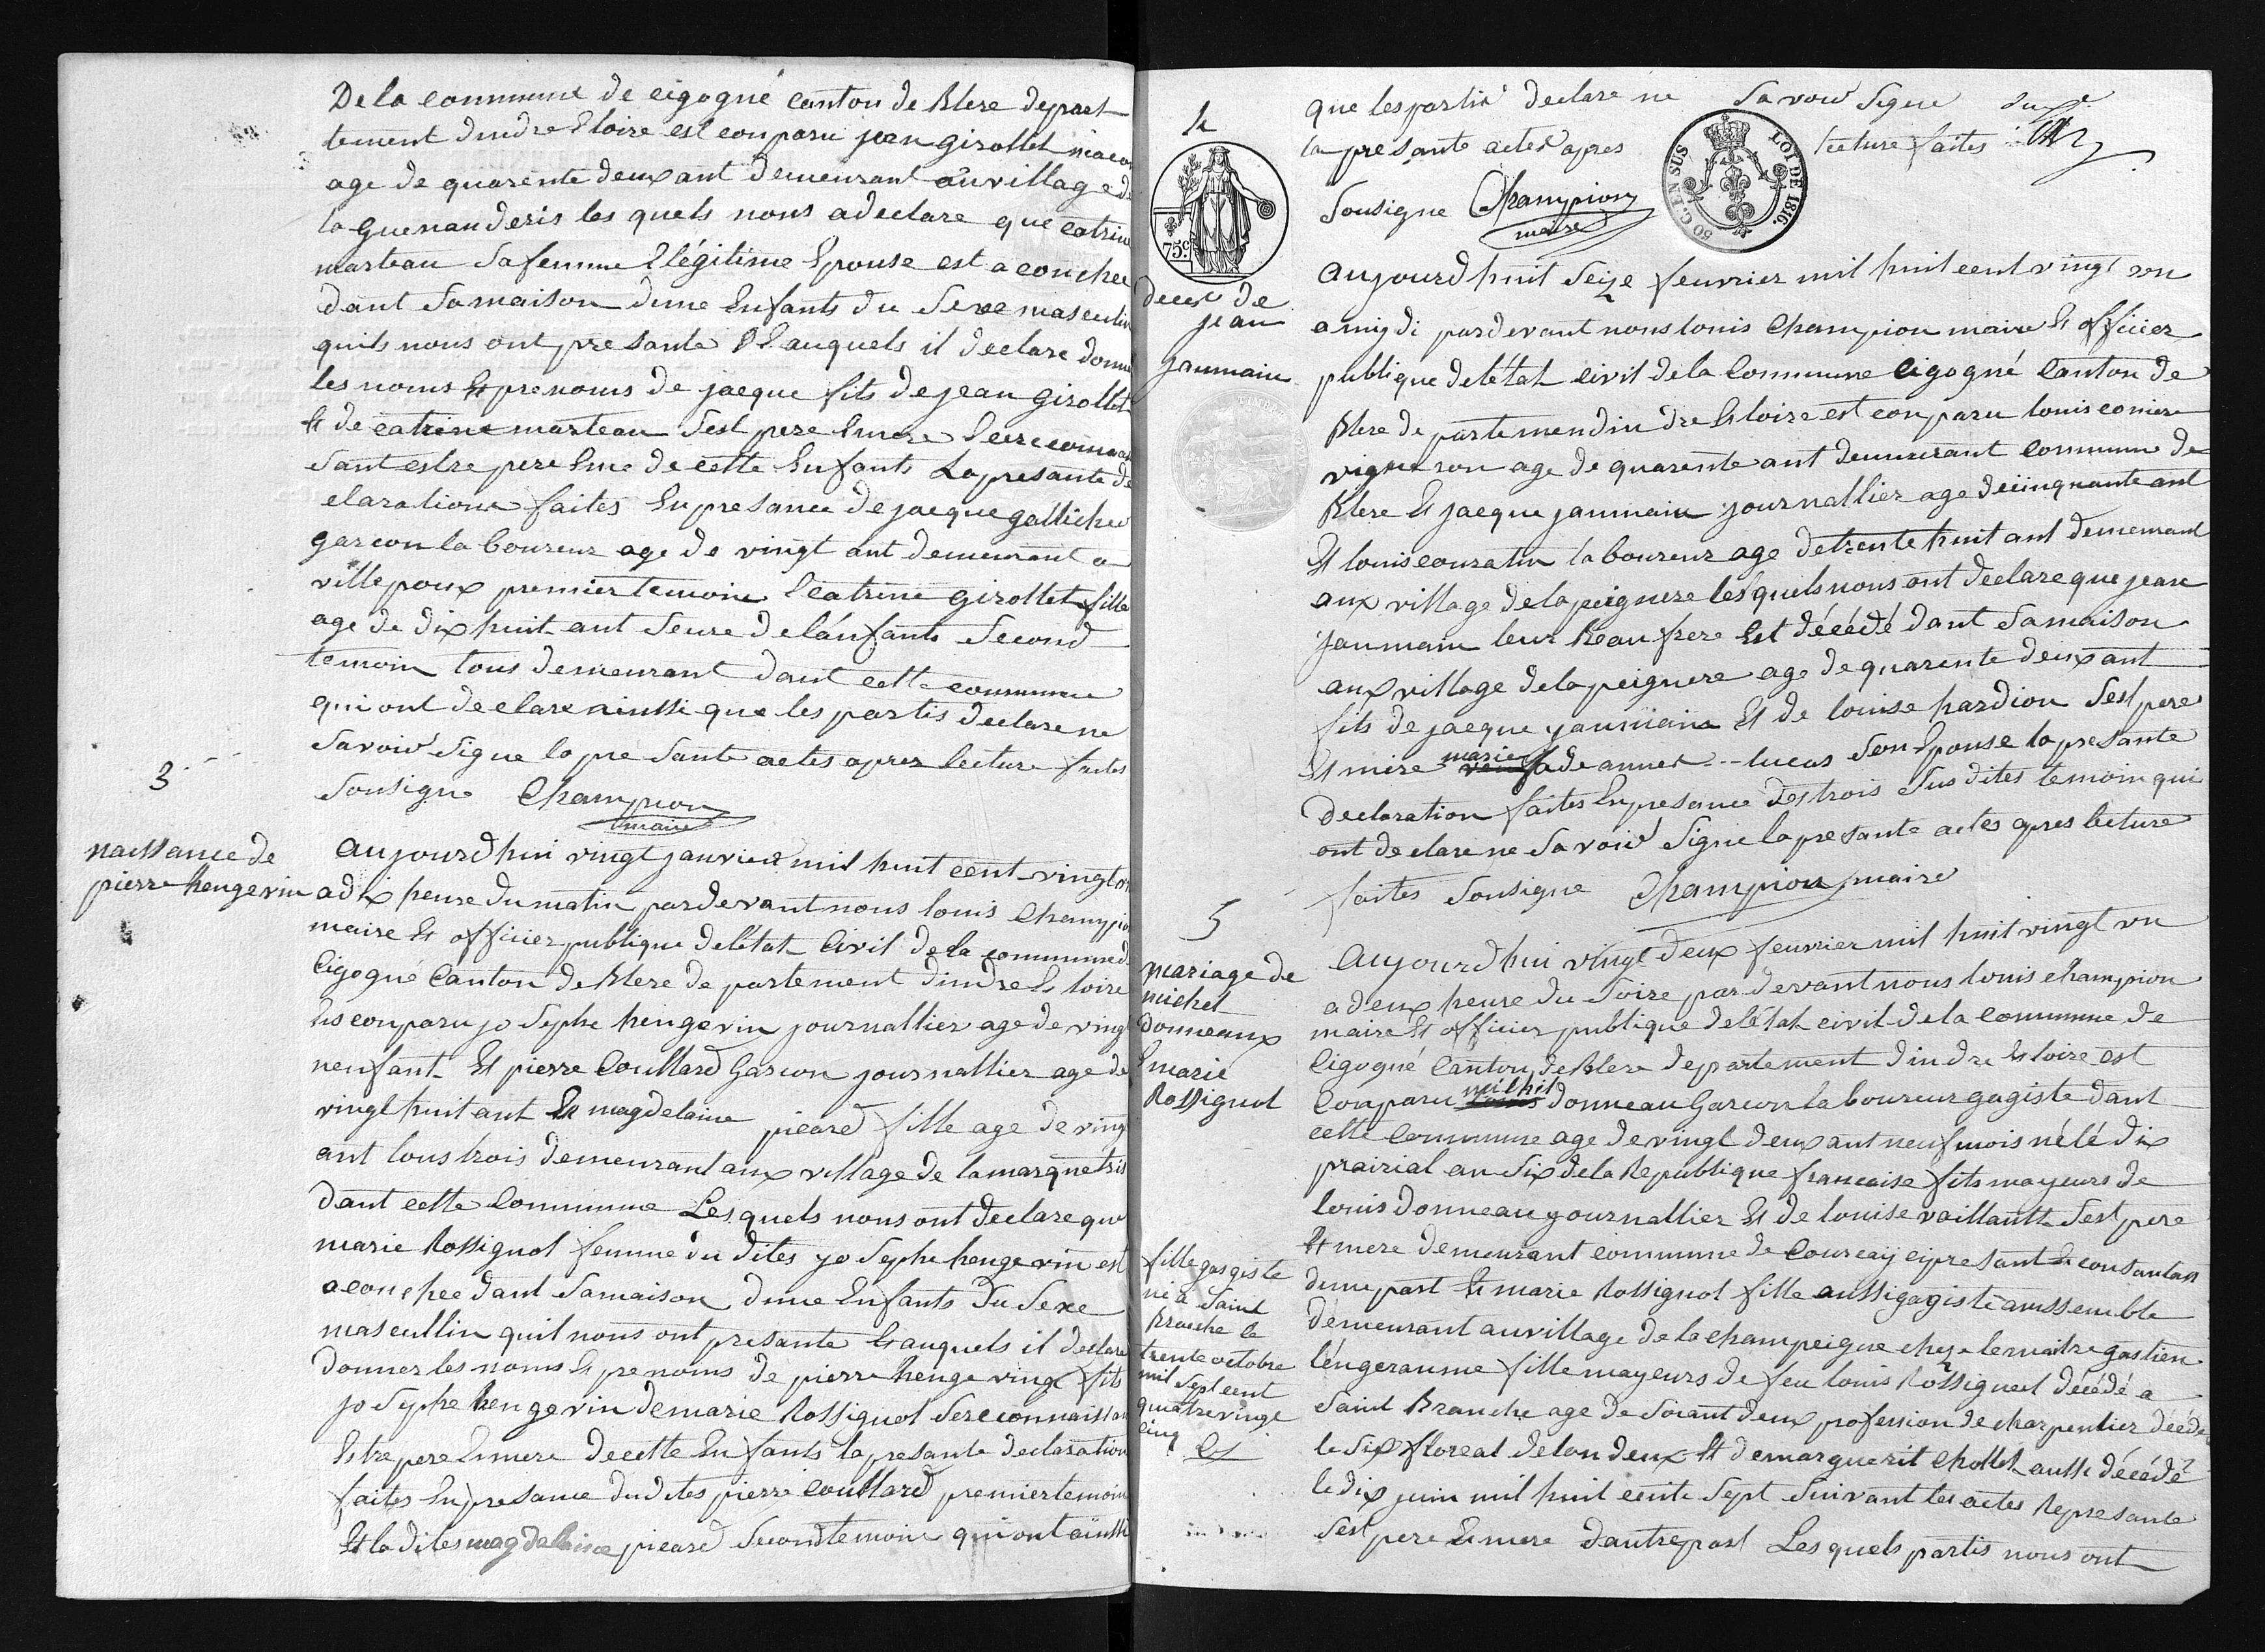 De la commune de cigogné canton de Blere depart
tement dindre & loire est conparu jean girollet macon
age de quarente deux ant demeurant au village de
la guenanderis les quels nous a declare que catrine
marteau sa femme & légitime Epouse est a conchee
dant sa maison dune Enfants du Sexe masculin
quils nous ont presante & auquels il declare donne
les noms Et prenoms de jacque fils de jean girollet
Et de catrine marteau Sest pere Emere Se reconnais
sant estre pere Eme de cette Enfants La presante de
claration faites En presance de jacque galliche
garcon laboureur age de vingt ant demeurant a
villepoux premier temoin & catrine girollet fille
age de dix huit ant Seure de lánfants Second
temoin tous demeurant dant cette commune
qui ont declare ainssi que les partis declare ne
Savoir Signe la presante actes apres lecture faites
Sousigne Champion
maire
3
naissance de
pierre hengevin
aujourdhui vingt janvier mil huit cent vingt un
a dix heure du matin pardevant nous louis Champion
maire Et officier publique delétat Civil de la commune de
Cigogné Canton de Blere departement dindre Et loire
Es conparu joSephe hengevin journallier age de vingt
neuf ant Et pierre Coullard Garcon journallier age de
vingt huit ant Et magdelaine picard fille age de vingt
ant tous trois demeurant aux village de lamarquetris
dant cette Commune Les quels nous ont declare que
marie Rossignol femme du dites joSephe hengevin est
aconchee dant Samaison dune Enfants du Sexe
mascullin quil nous ont presante Et auquels il declare
donner les noms Et prenoms de pierre hengevin fils
joSephe hengevin de marie Rossignol Sereconnaissan
Estre pere Emere de cette Enfants la presante declaration
faites En presance du dites pierre Coullard premier temoin
Et la dites magdelaine picard Second temoin qui ont ainssi
que les partis declare ne Savoir Signe
la presante actes apres lecture faites
50 C. EN SUS
LOI DE 1816.
Sousigne Champion
maire
75c.
deces de
jean
jaumain
aujourdhuit Seize feuvrier mil huit cent vingt un
a migdi pardevant nous louis Champion maire Et officier
publique delétat civil de la Commune Cigogné Canton de
Blere departemen dindre Et loire est conparu louis coniere
vigneron age de quarente ant demeurant commune de
Blere Et jacque jaumain journallier age de cinquante ant
Et louis couratin laboureur age de trente huit ant demeurant
aux village de la peignere lesquels nous ont declare que jean
jaumain leur Beau frere Est décédé dant Samaison
aux village de la peignere age de quarente deux ant
fils de jacque jaumain Et de louise hardion Sest pere
Et mere marie de annes -- lucas Son Epouse la presante
declaration faites En presance des trois Sus dites temoin qui
ont declare ne Savoir Signe la presante actes apres lecture
faites Sousigne Champion maire
5
mariage de
michel
donneaux
E marie
Rossignol
Aujourdhui vingt deux feuvrier mil huit vingt un
a deux heure du Soire par devant nous louis champion
maire Et officier publique delétat civil de la Commune de
Cigogné Canton de Blere departement dindre Et loire est
Conparu michil donneau Garcon laboureur gagiste dant
cette Commune age de vingt deux ant neuf mois né lé dix
prairial an Six de la Republique francaise fils mayeurs de
louis donneau journallier Et de louise vaillantt Sest pere
Et mere demeurant commune de Courcay cy presant Et consantan
dune part Et marie Rossignol fille aussi gagiste anssemble
demeurant au village de la champeigne chez le maitre gastien
léngeraume fille mayeurs de feu louis Rossignol décédé a
Saint Branche age de Soixant deux profession de charpentier décéde
le Six floreal de lan deux Et de marguerit chollet aussi décédé
le dix juin mil huit cente Sept Suivant les actes Represante
Sest pere Emere dautrepart Les quels partis nous ont
fille gasgiste
né a Saint
Branche le
trente octobre
mil Sept cent
quatre vingt
cinq